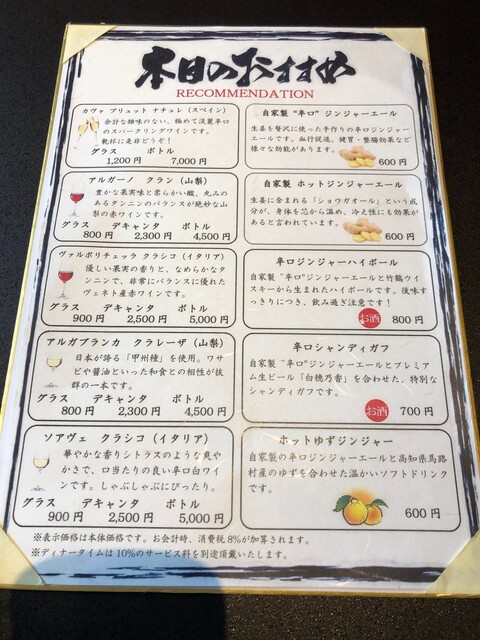 本日のおすすめ
RECOMMENDATION
カヴァ ブリュット ナチュレ (スペイン)
余計な雑味のない、極めて淡麗辛口
のスパークリングワインです。
乾杯に是非どうぞ！
グラス ボトル
1,200円 7,000円
アルガーノ クラン (山梨)
豊かな果実味と柔らかい酸、丸みの
あるタンニンのバランスが絶妙な山
梨の赤ワインです。
グラス デキャンタ ボトル
800円 2,300円 4,500円
ヴァルポリチェッラ クラシコ (イタリア)
優しい果実の香りと、なめらかなタ
ンニンで、非常にバランスに優れた
ヴェネト産赤ワインです。
グラス デキャンタ ボトル
900円 2,500円 5,000円
アルガブランカ クラレーザ (山梨)
日本が誇る「甲州種」を使用。ワサ
ビや醤油といった和食との相性が抜
群の一本です。
グラス デキャンタ ボトル
800円 2,300円 4,500円
ソアヴェ クラシコ (イタリア)
華やかな香りシトラスのような爽や
かさで、口当たりの良い辛口白ワイ
ンです。しゃぶしゃぶにぴったり。
グラス デキャンタ ボトル
900円 2,500円 5,000円
自家製 “辛口” ジンジャーエール
生姜を贅沢に使った手作りの辛口ジンジャー
エールです。血行促進、健胃・整腸効果など
様々な効能があります。
600円
自家製 ホットジンジャーエール
生姜に含まれる「ショウガオール」という成
分が、身体を芯から温め、冷え性にも効果が
あると言われています。
600円
辛口ジンジャーハイボール
自家製“辛口”ジンジャーエールと竹鶴ウイ
スキーから生まれたハイボールです。後味すっきりにつき、飲み過ぎ注意です！
お酒 800円
辛口シャンディガフ
自家製“辛口”ジンジャーエールとプレミア
ム生ビール「白穂乃香」を合わせた、特別な
シャンディガフです。
お酒 700円
ホットゆずジンジャー
自家製の辛口ジンジャーエールと高知県馬路
村産のゆずを合わせた温かいソフトドリンク
です。
600円
※表示価格は本体価格です。お会計時、消費税8%が加算されます。
※ディナータイムは10%のサービス料を別途頂戴いたします。